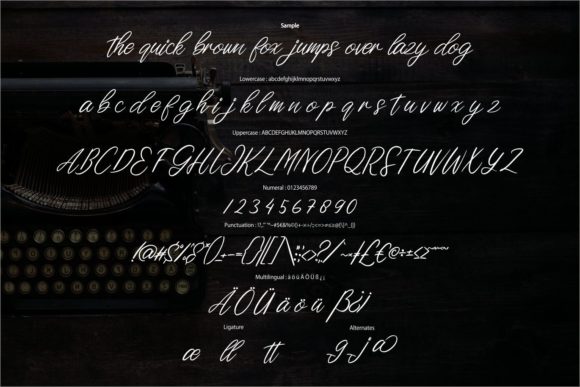 Sample
the quick brown fox jumps over lazy dog
Lowercase : abcdefghijklmnopqrstuvwxyz
a b c d e f g h i j k l m n o p q r s t u v w x y z
Uppercase : ABCDEFGHIJKLMNOPQRSTUVWXYZ
ABCDEFGHIJKLMNOPQRSTUVWXYZ
Numeral : 0123456789
1234567890
Punctuation :
Multilingual : ä ö ü Ä Ö Ü ß ¿ ¡
ÄÖÜäöü ß¿¡
Ligature Alternates
æ ll tt g j a